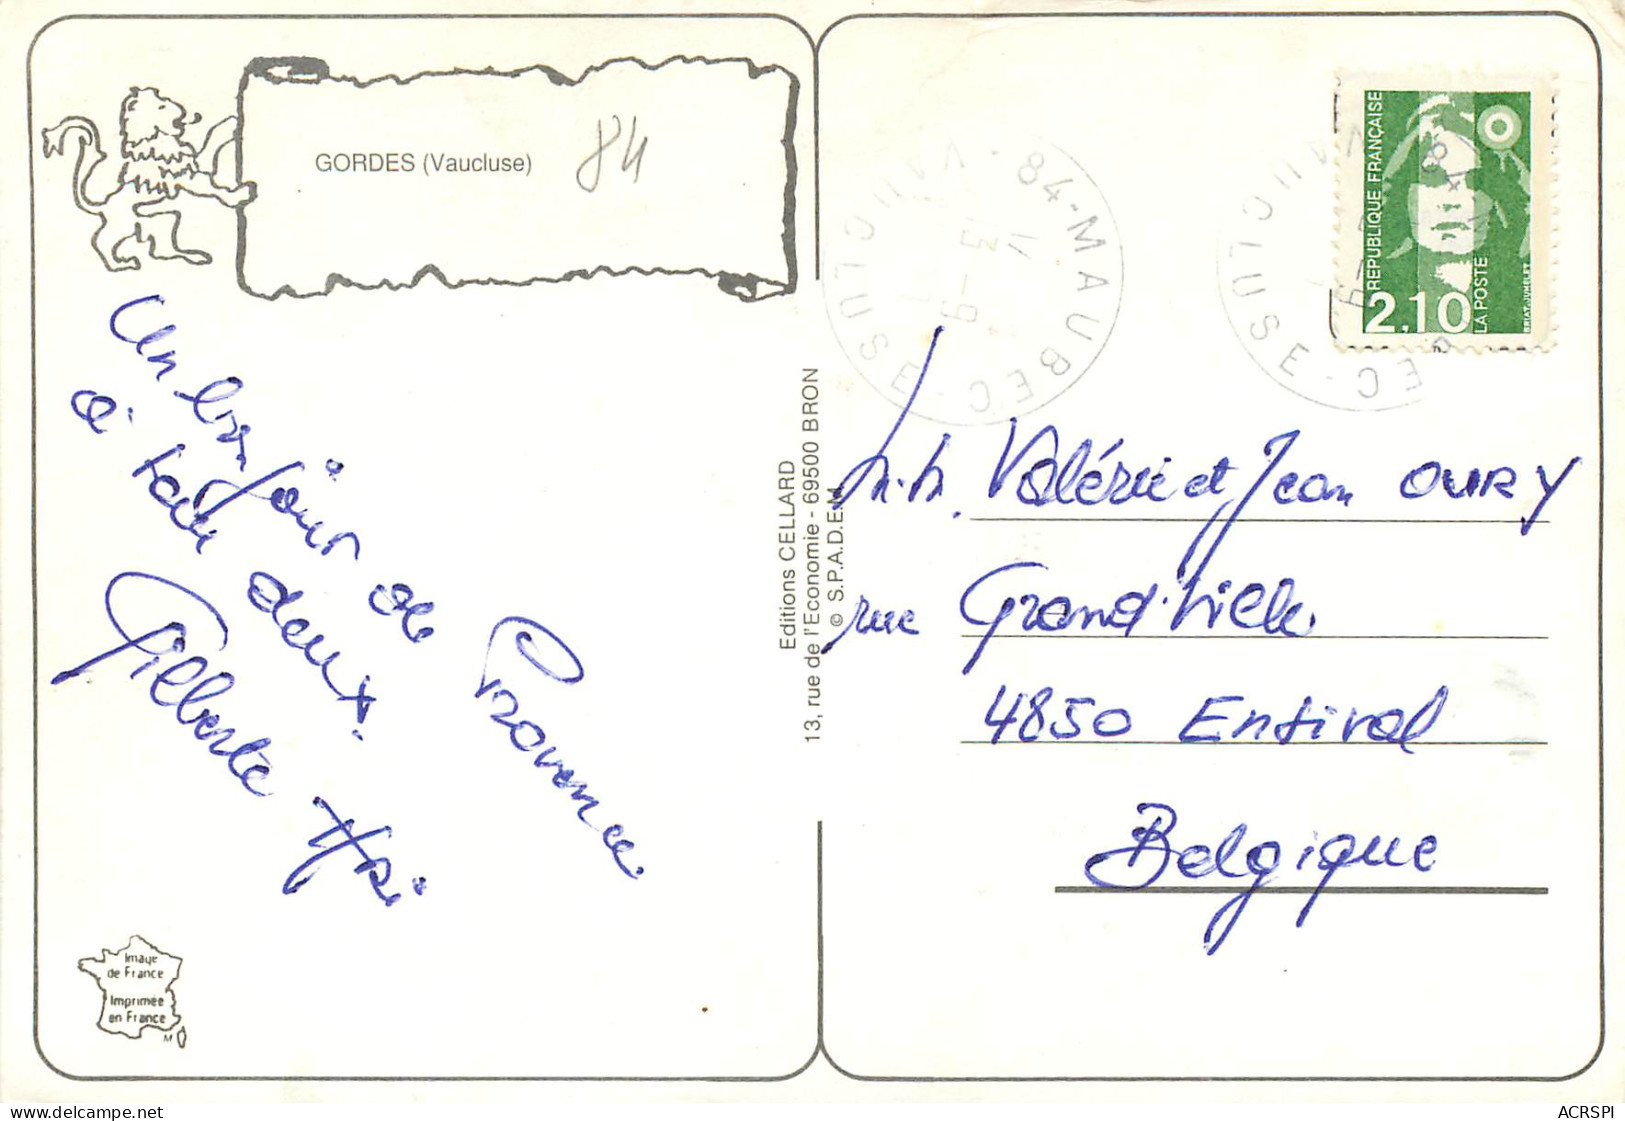 GORDES (Vaucluse)
84
Un bonjour de Provence
à tous deux.
Gilberte
Image
de France
Imprimée
en France
M
Editions CELLARD
13, rue de l'Economie - 69500 BRON
© S.P.A.D.E.M.
84-MAUBEC-VAUCLUSE
REPUBLIQUE FRANÇAISE
2,10
LA POSTE
BRIAT JUMELET
Valérie et Jean OURY
rue Grand'Ville
4850 Ensival
Belgique
ACRSPI
delcampe.net